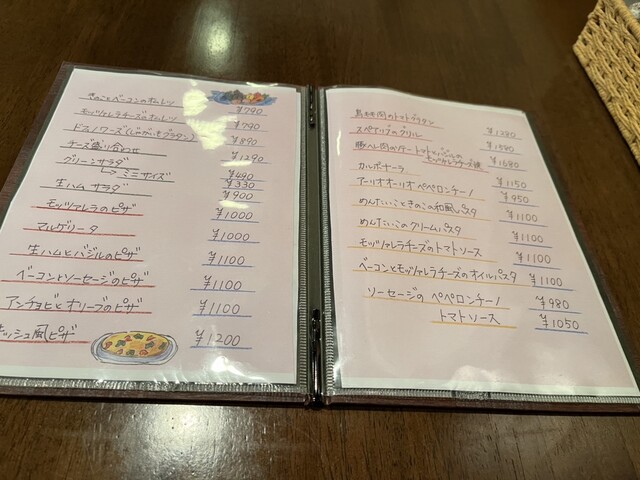 きのことベーコンのオムレツ ¥790
モッツァレラチーズのオムレツ ¥790
ドフィノワーズ(じゃがいもグラタン) ¥890
チーズ盛り合わせ ¥1290
グリーンサラダ ¥490
ミニサイズ ¥330
生ハムサラダ ¥900
モッツァレラのピザ ¥1000
マルゲリータ ¥1000
生ハムとバジルのピザ ¥1100
ベーコンとソーセージのピザ ¥1100
アンチョビとオリーブのピザ ¥1100
キッシュ風ピザ ¥1200
鳥もも肉のトマトグラタン ¥1280
スペアリブのグリル ¥1580
豚ヘレ肉のソテー トマトとバジルの
モッツァレラチーズ焼 ¥1680
カルボナーラ ¥1150
アーリオオーリオ ペペロンチーノ ¥950
めんたいこときのこの和風パスタ ¥1100
めんたいこのクリームパスタ ¥1100
モッツァレラチーズのトマトソース ¥1100
ベーコンとモッツァレラチーズのオイルパスタ ¥1100
ソーセージの ペペロンチーノ ¥980
トマトソース ¥1050